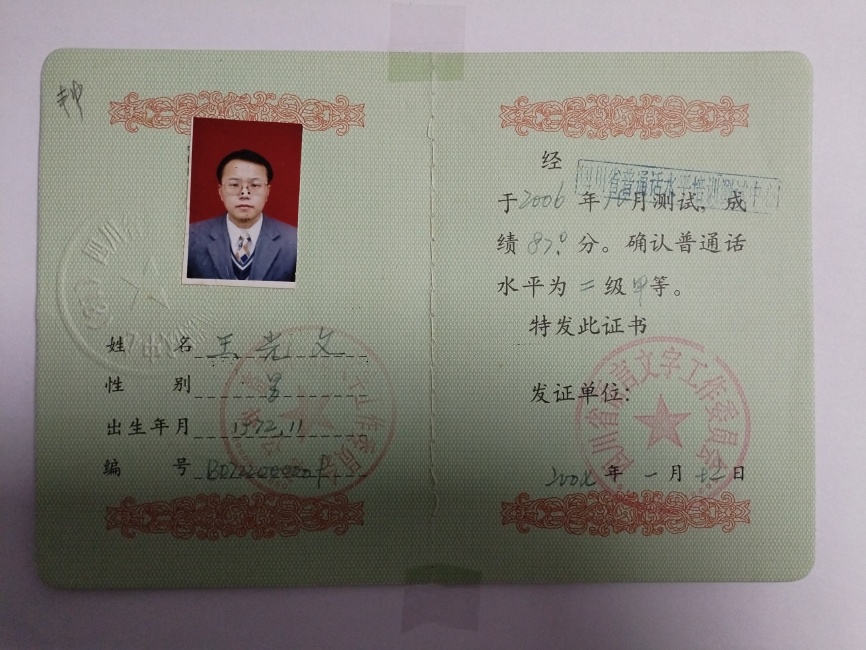 姓 名 王光文
性 别 男
出生年月 1972.11
编 号
经 四川省普通话水平培训测试中心
于2006年 月测试，成
绩87.0分。确认普通话
水平为二级甲等。
特发此证书
发证单位：
四川省语言文字工作委员会
年一月 日